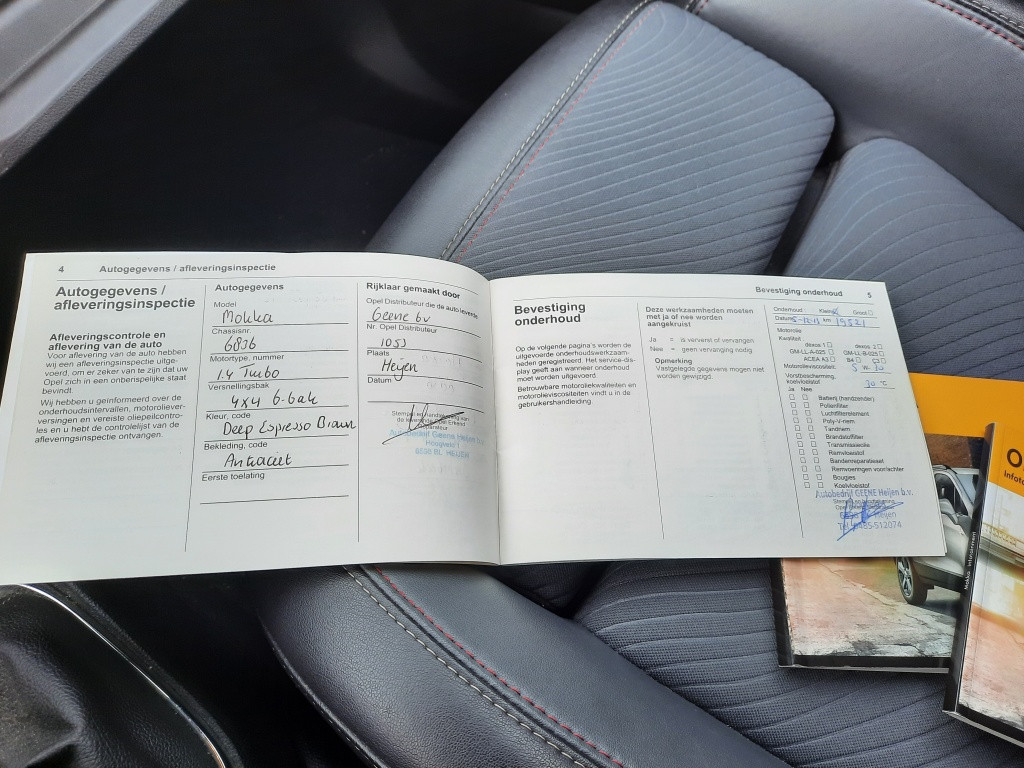 4 Autogegevens / afleveringsinspectie
Autogegevens /
afleveringsinspectie
Afleveringscontrole en
aflevering van de auto
Voor aflevering van de auto hebben
wij een afleveringsinspectie uitge-
voerd, om er zeker van te zijn dat uw
Opel zich in een onberispelijke staat
bevindt.
Wij hebben u geïnformeerd over de
onderhoudsintervallen, motoriolever-
versingen en vereiste oliepeilcontro-
les en u hebt de controlelijst van de
afleveringsinspectie ontvangen.
Autogegevens
Model
Mokka
Chassisnr.
6836
Motortype, nummer
1.4 Turbo
Versnellingsbak
4x4 6-bak
Kleur, code
Deep Espresso Braun
Bekleding, code
Antraciet
Eerste toelating
Rijklaar gemaakt door
Opel Distributeur die de auto leverde
Geene bv
Nr. Opel Distributeur
1053
Plaats
Heijen
Datum
Stempel en handtekening van
de leverende Opel Erkend
Reparateur
Autobedrijf Geene Heijen
Hoogveld 1
HEIJEN
Bevestiging onderhoud 5
Bevestiging
onderhoud
Op de volgende pagina's worden de
uitgevoerde onderhoudswerkzaam-
heden geregistreerd. Het service-dis-
play geeft aan wanneer onderhoud
moet worden uitgevoerd.
Betrouwbare motoroliekwaliteiten en
motorolieviscositeiten vindt u in de
gebruikershandleiding.
Deze werkzaamheden moeten
met ja of nee worden
aangekruist
Ja = is ververst of vervangen
Nee = geen vervanging nodig
Opmerking
Vastgelegde gegevens mogen niet
worden gewijzigd.
Onderhoud Klein Groot
Datum km 19521
Motorolie
Kwaliteit
dexos 1 dexos 2
GM-LL-A-025 GM-LL-B-025
ACEA A3 B4 C3
Motorolieviscositeit: 5 w 30
Vorstbescherming,
koelvloeistof 30 °C
Ja Nee
Batterij (handzender)
Pollenfilter
Luchtfilterelement
Poly-V-riem
Tandriem
Brandstoffilter
Transmissieolie
Remvloeistof
Bandenreparatieset
Remvoeringen voor/achter
Bougies
Koelvloeistof
Autobedrijf GEENE Heijen b.v.
Heijen
Tel. 0485-512074